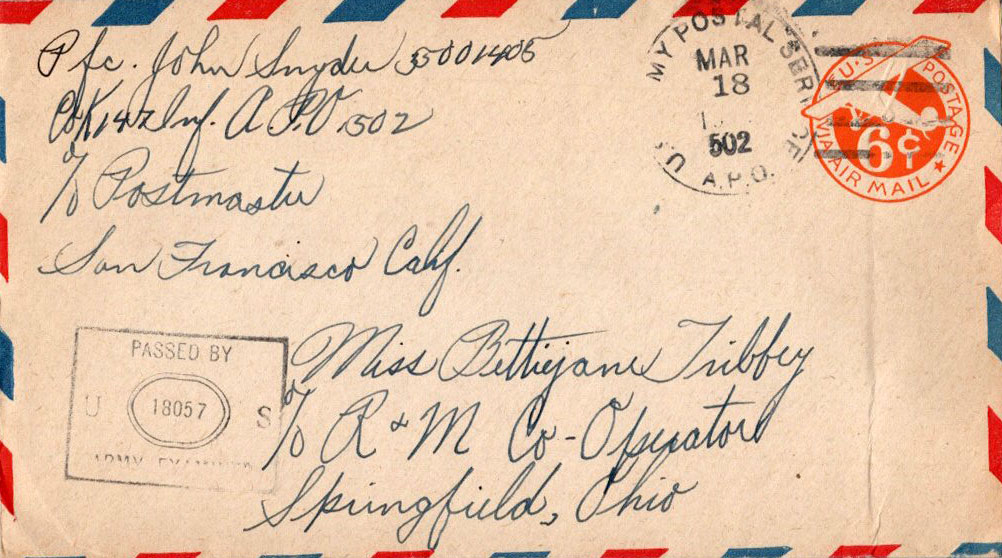 Pfc. John Snyder 35001405
Co K 147 Inf. A.P.O 502
c/o Postmaster
San Francisco Calif.
U.S. ARMY POSTAL SERVICE
MAR
18
502
A.P.O.
U.S. POSTAGE
6¢
VIA AIR MAIL
PASSED BY
U 18057 S
ARMY EXAMINER
Miss Bettiejane Tribbey
c/o R & M Co-Operator
Springfield, Ohio